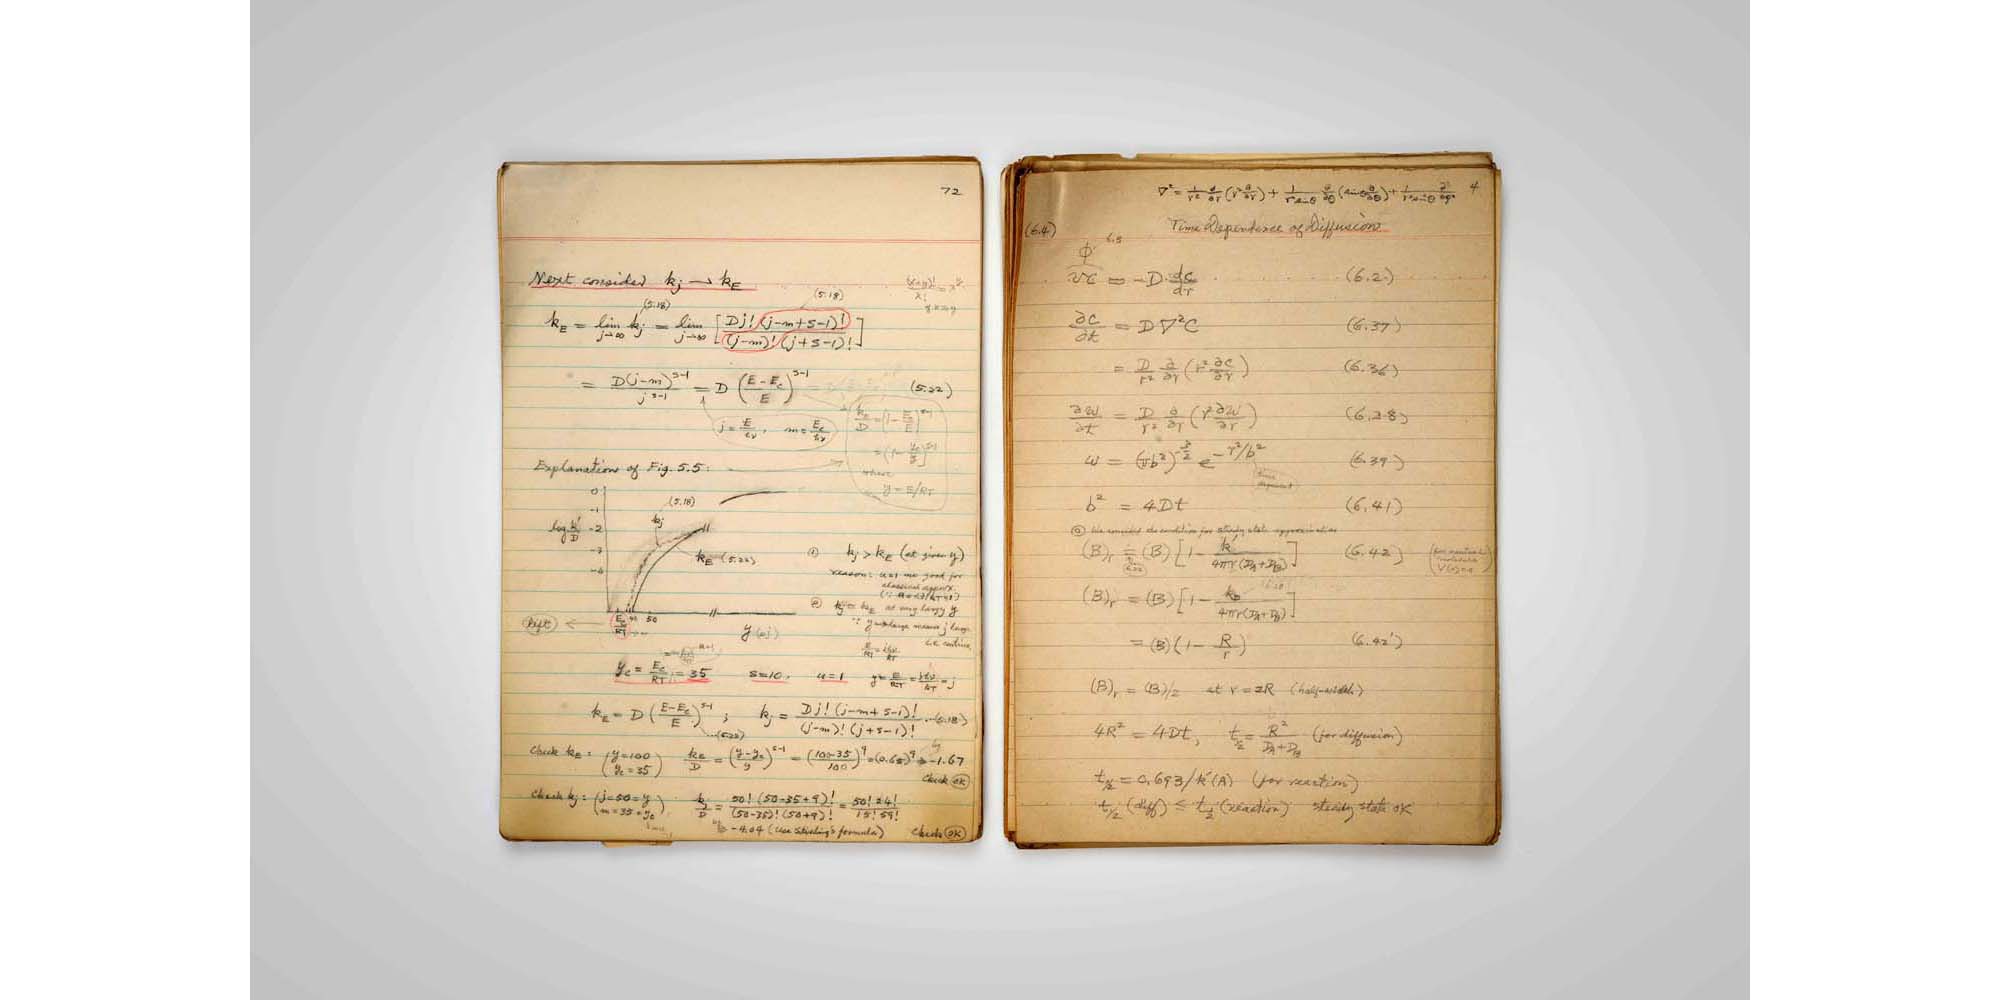 72
Next consider kⱼ → k_E
(5.18) (5.18)
k_E = lim_{j→∞} kⱼ = lim_{j→∞} [ Dj! (j-m+s-1)! / (j-m)! (j+s-1)! ]
= D(j-m)^{s-1} / j^{s-1} = D ( (E-E_c) / E )^{s-1} (5.22)
j = E/hν, m = E_c/hν
k_E/D = [1 - E_c/E]^{s-1}
where
y = E/RT
Explanation of Fig. 5.5:
0
-1
-2
-3
-4
log k/D
(5.18)
kⱼ
k_E (5.22)
① kⱼ > k_E (at given y)
reason: u=1 no good for
classical approx.
② kⱼ = k_E at very large y
∵ y large means j large
E_c/RT 40 50
y (or j)
y_c = E_c/RT = 35 s=10, u=1 y = E/RT = jhν/RT = j
k_E = D ( (E-E_c) / E )^{s-1} ; kⱼ = Dj! (j-m+s-1)! / (j-m)! (j+s-1)! ...(5.18)
...(5.22)
Check k_E: (y=100 y_c=35) k_E/D = ( (y-y_c) / y )^{s-1} = ( (100-35) / 100 )^9 = (0.65)^9 → -1.67
Check OK
Check kⱼ: (j=50=y m=35=y_c) kⱼ/D = 50! (50-35+9)! / (50-35)! (50+9)! = 50! 24! / 15! 59!
-4.04 (Use Stirling's formula) Check OK
∇² = 1/r² ∂/∂r (r² ∂/∂r) + 1/r² sinθ ∂/∂θ (sinθ ∂/∂θ) + 1/r² sin²θ ∂²/∂φ² 4
(6.4) Time Dependence of Diffusion
ϕ 6.5
= -D dc/dr (6.2)
∂c/∂t = D∇²C (6.37)
= D/r² ∂/∂r (r² ∂c/∂r) (6.36)
∂w/∂t = D/r² ∂/∂r (r² ∂w/∂r) (6.38)
w = (πb²)^{-3/2} e^{-r²/b²} (6.39)
b² = 4Dt (6.41)
We consider the condition for steady state approximation
(B)ᵣ = (B) [1 - k' / 4πr(D_A+D_B)] (6.42)
(B)ᵣ = (B) [1 - k_D / 4πr(D_A+D_B)]
= (B) (1 - R/r) (6.42')
(B)ᵣ = (B)/2 at r = 2R (half-width)
4R² = 4Dt, t_{1/2} = R² / D_A+D_B (for diffusion)
t_{1/2} = 0.693/k'(A) (for reaction)
t_{1/2} (diff) ≤ t_{1/2} (reaction) steady state OK